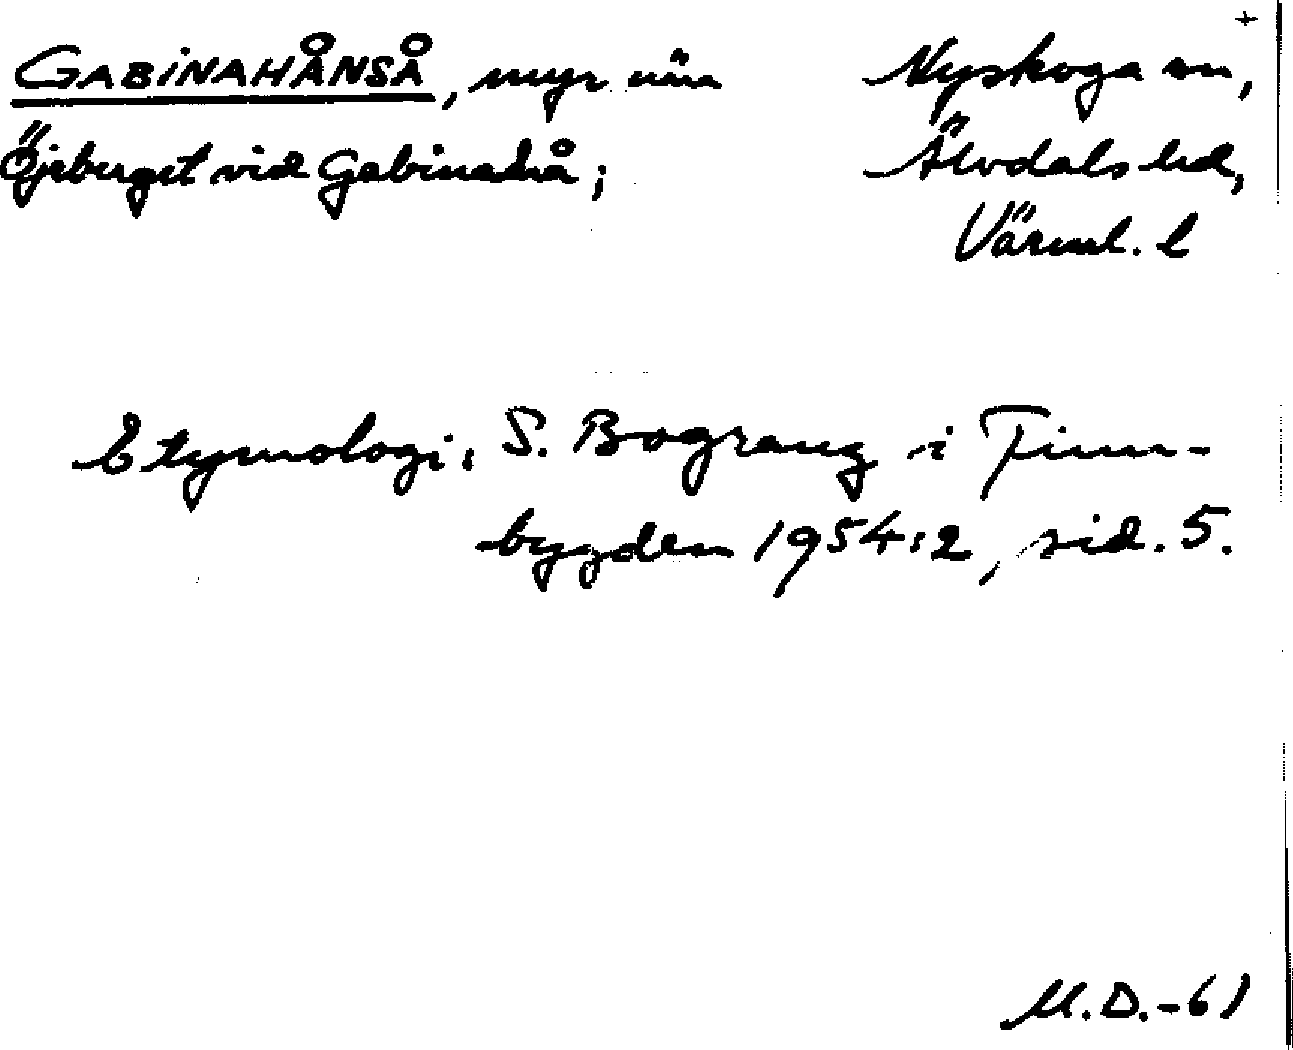 +
GABINAHÅNSÅ, myr nära
Öjeberget vid Gabinahå;
Nyskoga sn,
Älvdals hd,
Värml. l
Etymologi: S. Bograng i Finn-
bygden 1954:2, sid. 5.
M.D.-61